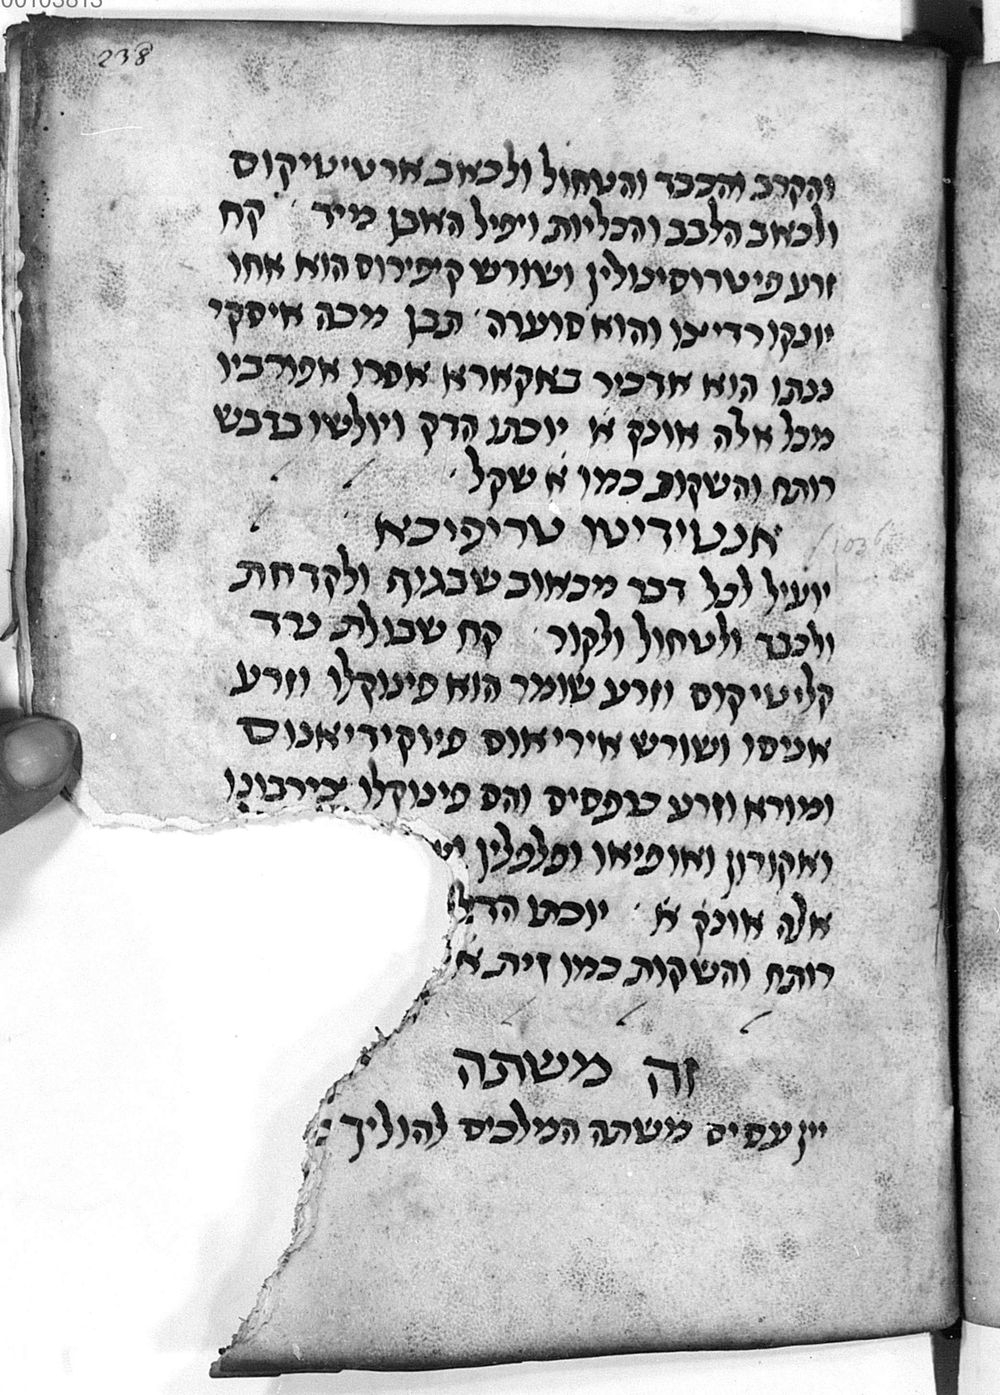 238
והקרב והכבד והטחול ולכאב ארטיטיקוס
ולכאב הלבב והכליות ויפיל האבן מיד קח
זרע פיטרוסינולין ושורש קיפירוס הוא אחו
יונקו רדיצו והוא סוערה תבן מכה איסקי
ננתו הוא אדכיר באקארא אסרו אפורביו
מכל אלה אונק א יוכתו הדק ויולשו בדבש
רותח והשקות כמו א שקל
אנטידיטו טריפיכא
יועיל לכל דבר מכאוב שבגוף ולקדחת
ולכבד ולטחול ולקור קח שבולת נרד
קליטיקוס וזרע שומר הוא פינוקלו וזרע
אניסו ושורש איריאוס פיוקידיאנוס
ומורא וזרע כרפסיס והם פינוקלו צירבונו
ואקורון ואופיאו ופלפלין
אלה אונק א יוכתו הדק
רותח והשקות כמו זית
זה משתה
יין עסיס משתה המלכים להוליך